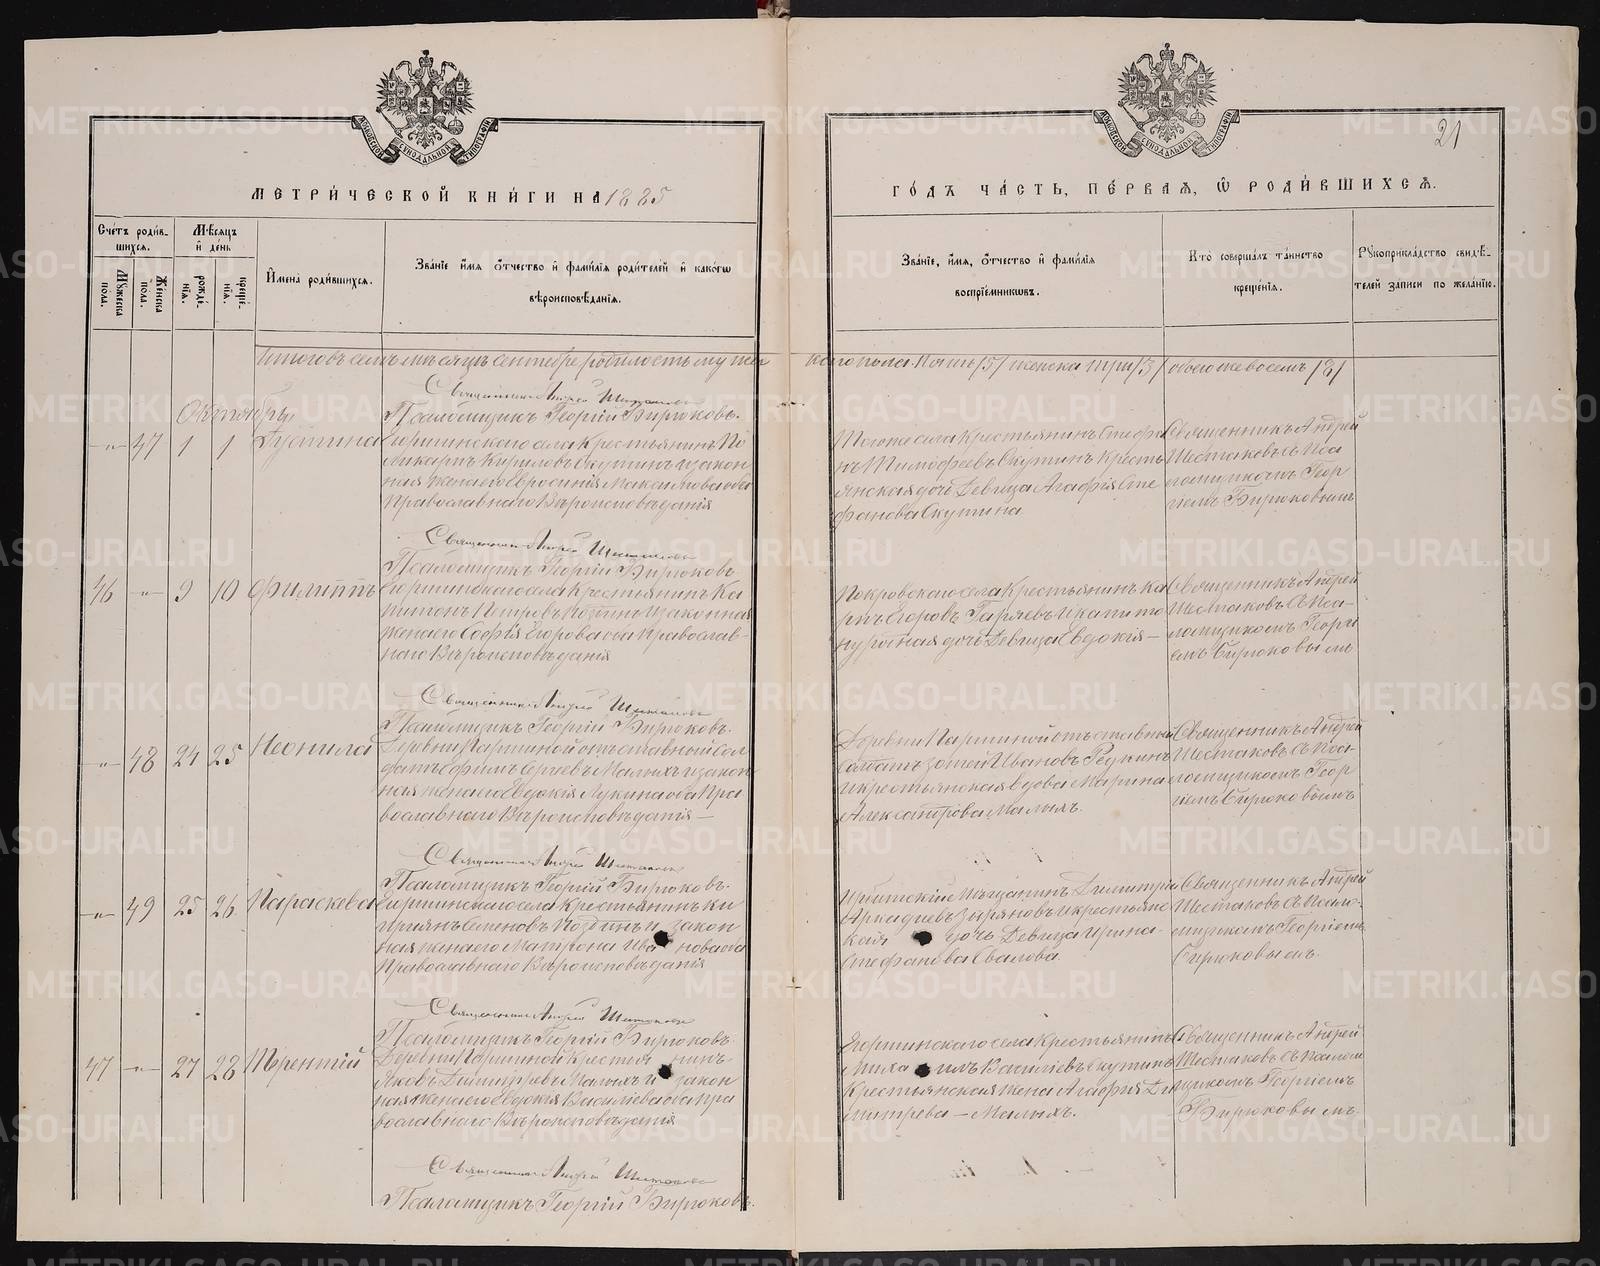 МЕТРИЧЕСКОЙ КНИГИ НА 1885
ГОДЪ ЧАСТЬ, ПЕРВАЯ, Ѡ РОДИВШИХСЯ.
21
МОСКОВСКОЙ СѴНОДАЛЬНОЙ ТИПОГРАФІИ
МОСКОВСКОЙ СѴНОДАЛЬНОЙ ТИПОГРАФІИ
Счетъ родив-
шихся.
Мѣсяцъ
и день
Мужеска пола.
Женска пола.
рожденія.
крещенія.
Имена родившихся.
Званіе имя отчество и фамилія родителей и какогѡ
вѣроисповѣданія.
Званіе, имя, отчество и фамилія
воспріемниковъ.
Кто совершалъ таинство
крещенія.
Рукоприкладство свидѣ-
телей записи по желанію.
Итого въ семъ мѣсяцѣ Сентябрѣ родилось мужес
каго пола Пять /5/ женска три /3/ обоего же восемь /8/
Священникъ Андрей Шестаковъ
Псаломщикъ Георгій Бирюковъ.
Октябрь
-"- 47 1 1 Іустина
крестьянинъ По
ликарпъ Кириловъ Скутинъ и закон
ная жена его Евросинія Максимова оба
Православнаго Вѣроисповѣданія
Тогоже села Крестьянинъ Стефа
нъ Тимофеевъ Скутинъ Кресть
янская дочь Девица Агафія Сте
фанова Скутина
Священникъ Андрей
Шестаковъ съ Пса
ломщикомъ Геор
гіемъ Бирюковымъ
Священникъ Андрей Шестаковъ
Псаломщикъ Георгій Бирюковъ
46 -"- 9 10 Филиппъ
Крестьянинъ Ка
питонъ Петровъ и законная
жена его Софія Егорова оба Православ-
наго Вѣроисповѣданія
Покровскаго села Крестьянинъ Ка
рпъ Егоровъ
родная дочь Девица Евдокія —
Священникъ Андрей
Шестаковъ съ Пса-
ломщикомъ Георгі
емъ Бирюковымъ
Священникъ Андрей Шестаковъ
Псаломщикъ Георгій Бирюковъ.
-"- 48 24 25 Неонила
Деревни Паршиной отставный Сол
датъ Ефимъ Сергеевъ Малыхъ и закон
ная жена его Евдокія Лукина оба Пра
вославнаго Вѣроисповѣданія —
Деревни Паршиной отставный
Солдатъ Ивановъ Редкинъ
и крестьянская вдова Марина
Александрова Малыхъ.
Священникъ Андрей
Шестаковъ съ Пса
ломщикомъ Геор
гіемъ Бирюковымъ
Священникъ Андрей Шестаковъ
Псаломщикъ Георгій Бирюковъ.
-"- 49 25 26 Параскева
села Крестьянинъ Ки
пріянъ Семеновъ и закон
ная жена его Матрона Ивановна оба
Православнаго Вѣроисповѣданія
Ирбитскій Мѣщанинъ Димитрій
Аркадіевъ Зыряновъ и крестьянс
кая дочь Девица Ирина
Стефанова Свалова.
Священникъ Андрей
Шестаковъ съ Псало-
мщикомъ Георгіемъ
Бирюковымъ.
Священникъ Андрей Шестаковъ
Псаломщикъ Георгій Бирюковъ.
47 -"- 27 28 Терентій
Деревни Паршиной Крестьянинъ
Яковъ Димитріевъ Малыхъ и закон
ная жена его Евдокія Васильева оба Пра
вославнаго Вѣроисповѣданія
Егоршинскаго села Крестьянинъ
Васильевъ Скутинъ
Крестьянская жена Агафія Ди
митрева — Малыхъ.
Священникъ Андрей
Шестаковъ съ Псалом
щикомъ Георгіемъ
Бирюковымъ
Священникъ Андрей Шестаковъ
Псаломщикъ Георгій Бирюковъ.
METRIKI.GASO-URAL.RU